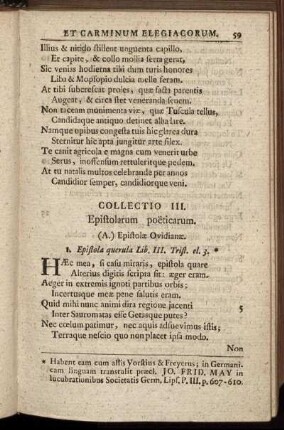 ET CARMINUM ELEGIACORUM. 59
Illius & nitido stillent unguenta capillo,
Et capite, & collo mollia serta gerat,
Sic venias hodierna tibi dum turis honores
Libu & Mopsopio dulcia melle feram.
At tibi subcrescat proles, quæ facta parentis
Augeat, & circa stet veneranda senem.
Non taceam munimenta viæ, quæ Tuscula tellus,
Candidaque antiquo detinet alba lare.
Namque opibus congesta tuis hic glarea dura
Sternitur hic apta jungitur arte silex.
Te canit agricola e magna cum venerit urbe
Serus, inoffensum retuleritque pedem.
At tu natalis multos celebrande per annos
Candidior semper, candidiorque veni.
COLLECTIO III.
Epistolarum poëticarum.
(A.) Epistolæ Ovidianæ.
1. Epistola querula Lib. III. Trist. el. 3. *
HÆc mea, si casu miraris, epistola quare
Alterius digitis scripta sit: æger eram.
Aeger in extremis ignoti partibus orbis;
Incertusque meæ pene salutis eram.
Quid mihi nunc animi dira regione jacenti 5
Inter Sauromatas esse Getasque putes?
Nec cœlum patimur, nec aquis adsuevimus istis;
Terraque nescio quo non placet ipsa modo.
Non
* Habent eam cum astis Vorstius & Freyerus; in Germani-
cam linguam transtulit præcl. JO. FRID. MAY in
lucubrationibus Societatis Germ. Lips. P. III. p. 607-610.